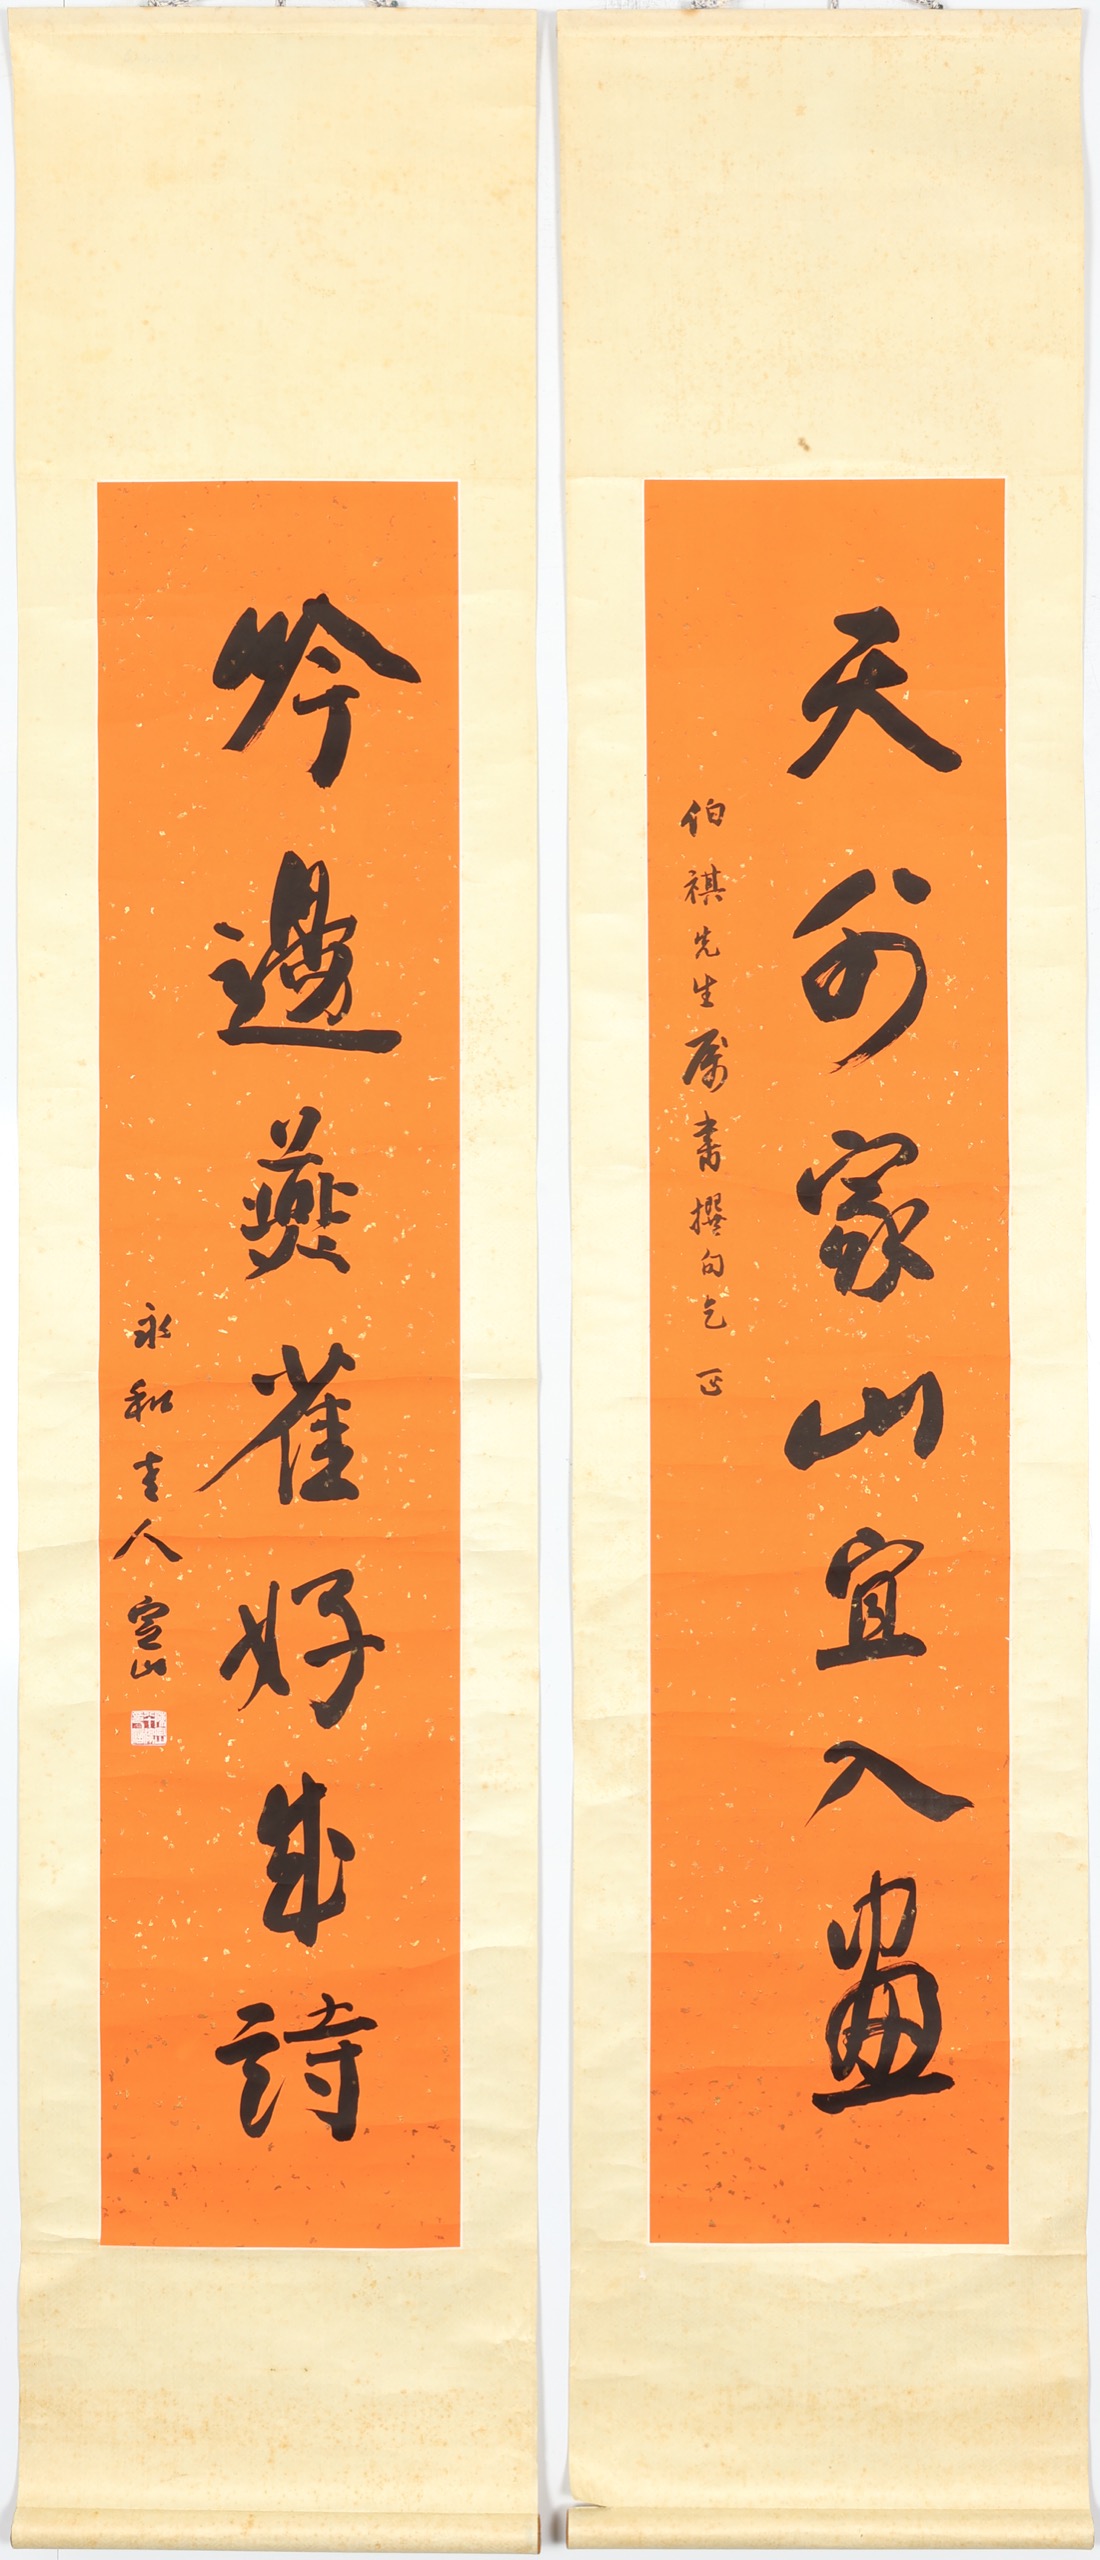 天外家山宜入畫
伯祺先生屬書撰句乞 正
吟邊燕雀好成詩
永和主人 靈山